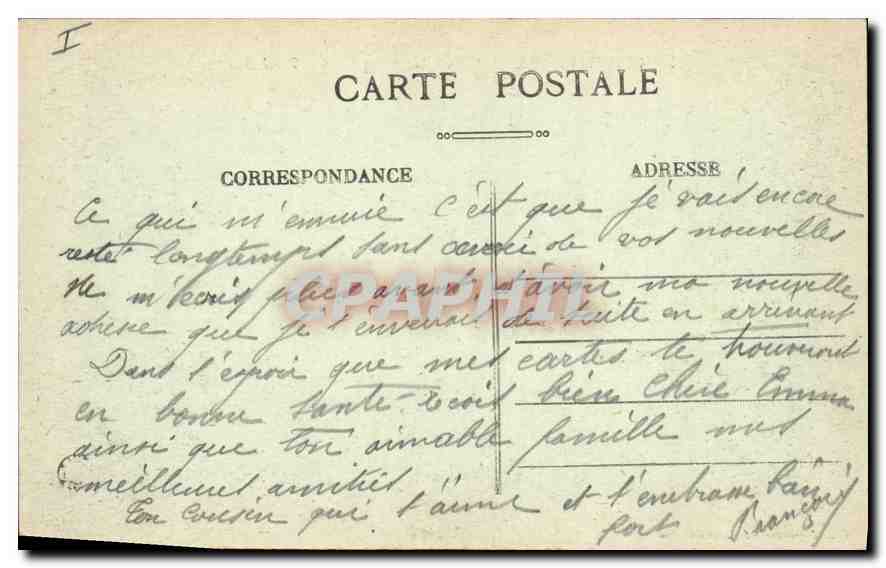 I
CARTE POSTALE
CORRESPONDANCE
ADRESSE
Ce qui m'ennuie c'est que je vais encore
resté longtemps sans avoir de vos nouvelles
Ne m'écris plus avant d'avoir ma nouvelle
adresse que je t'enverrai de suite en arrivant
Dans l'espoir que mes cartes te trouveront
en bonne santé reçois bien Chère Emma
ainsi que ton aimable famille mes
meilleures amitiés
Ton cousin qui t'aime et t'embrasse bien
fort François
CPAPHIL